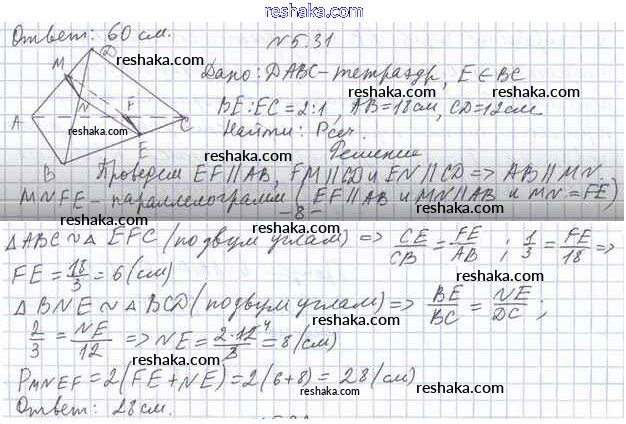 reshaka.com
Ответ: 60 см.
№5.31
Дано: DABC-тетраэдр, E∈BC
BE:EC=2:1, AB=18см, CD=12см.
Найти: Pсеч.
Решение
D
M
N
F
A
C
E
B
Проведем EF||AB, FM||CD и EN||CD => AB||MN.
MNFE-параллелограмм (EF||AB и MN||AB и MN=FE)
-8-
△ABC∼△EFC (по двум углам) => CE/CB = FE/AB ; 1/3 = FE/18 =>
FE = 18/3 = 6 (см)
△BNE∼△BCD (по двум углам) => BE/BC = NE/DC ;
2/3 = NE/12 => NE = 2·12⁴/3 = 8 (см)
P_MNEF = 2(FE+NE) = 2(6+8) = 28 (см)
Ответ: 28см.
reshaka.com
reshaka.com
reshaka.com
reshaka.com
reshaka.com
reshaka.com
reshaka.com
reshaka.com
reshaka.com
reshaka.com